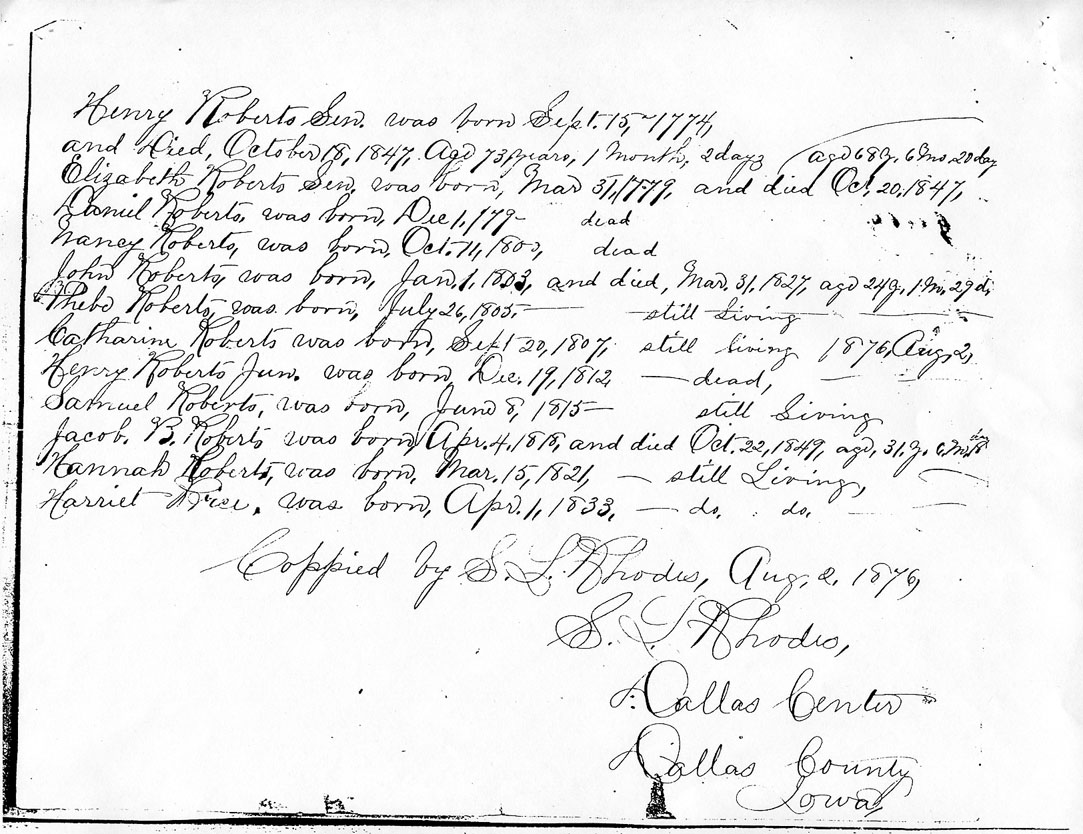 Henry Roberts Sen. was born Sept. 15, 1774,
and Died, October 18, 1847, Agd 73 years, 1 Month, 2 days
agd 68 y. 6 Mo. 20 day
Elizabeth Roberts Sen. was born, Mar 31, 1779, and died Oct. 20, 1847,
Daniel Roberts, was born, Dec 1, 179- dead
Nancy Roberts, was born, Oct. 11, 180 dead
John Roberts, was born, Jan. 1. 1803, and died, Mar. 31, 1827, agd 24 y, 1 M, 29 d,
Phebe Roberts, was born, July 26, 1805, — still Living —
Catharine Roberts was born, Sept 20, 1807, still living 1876, Aug, 2,
Henry Roberts Jun. was born Dec. 19, 1812 — dead, —
Samuel Roberts, was born, June 8, 1815 — still Living
Jacob. B. Roberts was born, Apr. 4, 1818, and died Oct. 22, 1849, agd, 31. y. 6 M, 18 day
Hannah Roberts, was born, Mar. 15, 1821, — still Living, —
Harriet Price. was born, Apr. 1, 1833, — do. do. — —
Coppied by S. L. Rhodes, Aug, 2, 1876,
S. L Rhodes,
Dallas Center
Dallas County
Iowa